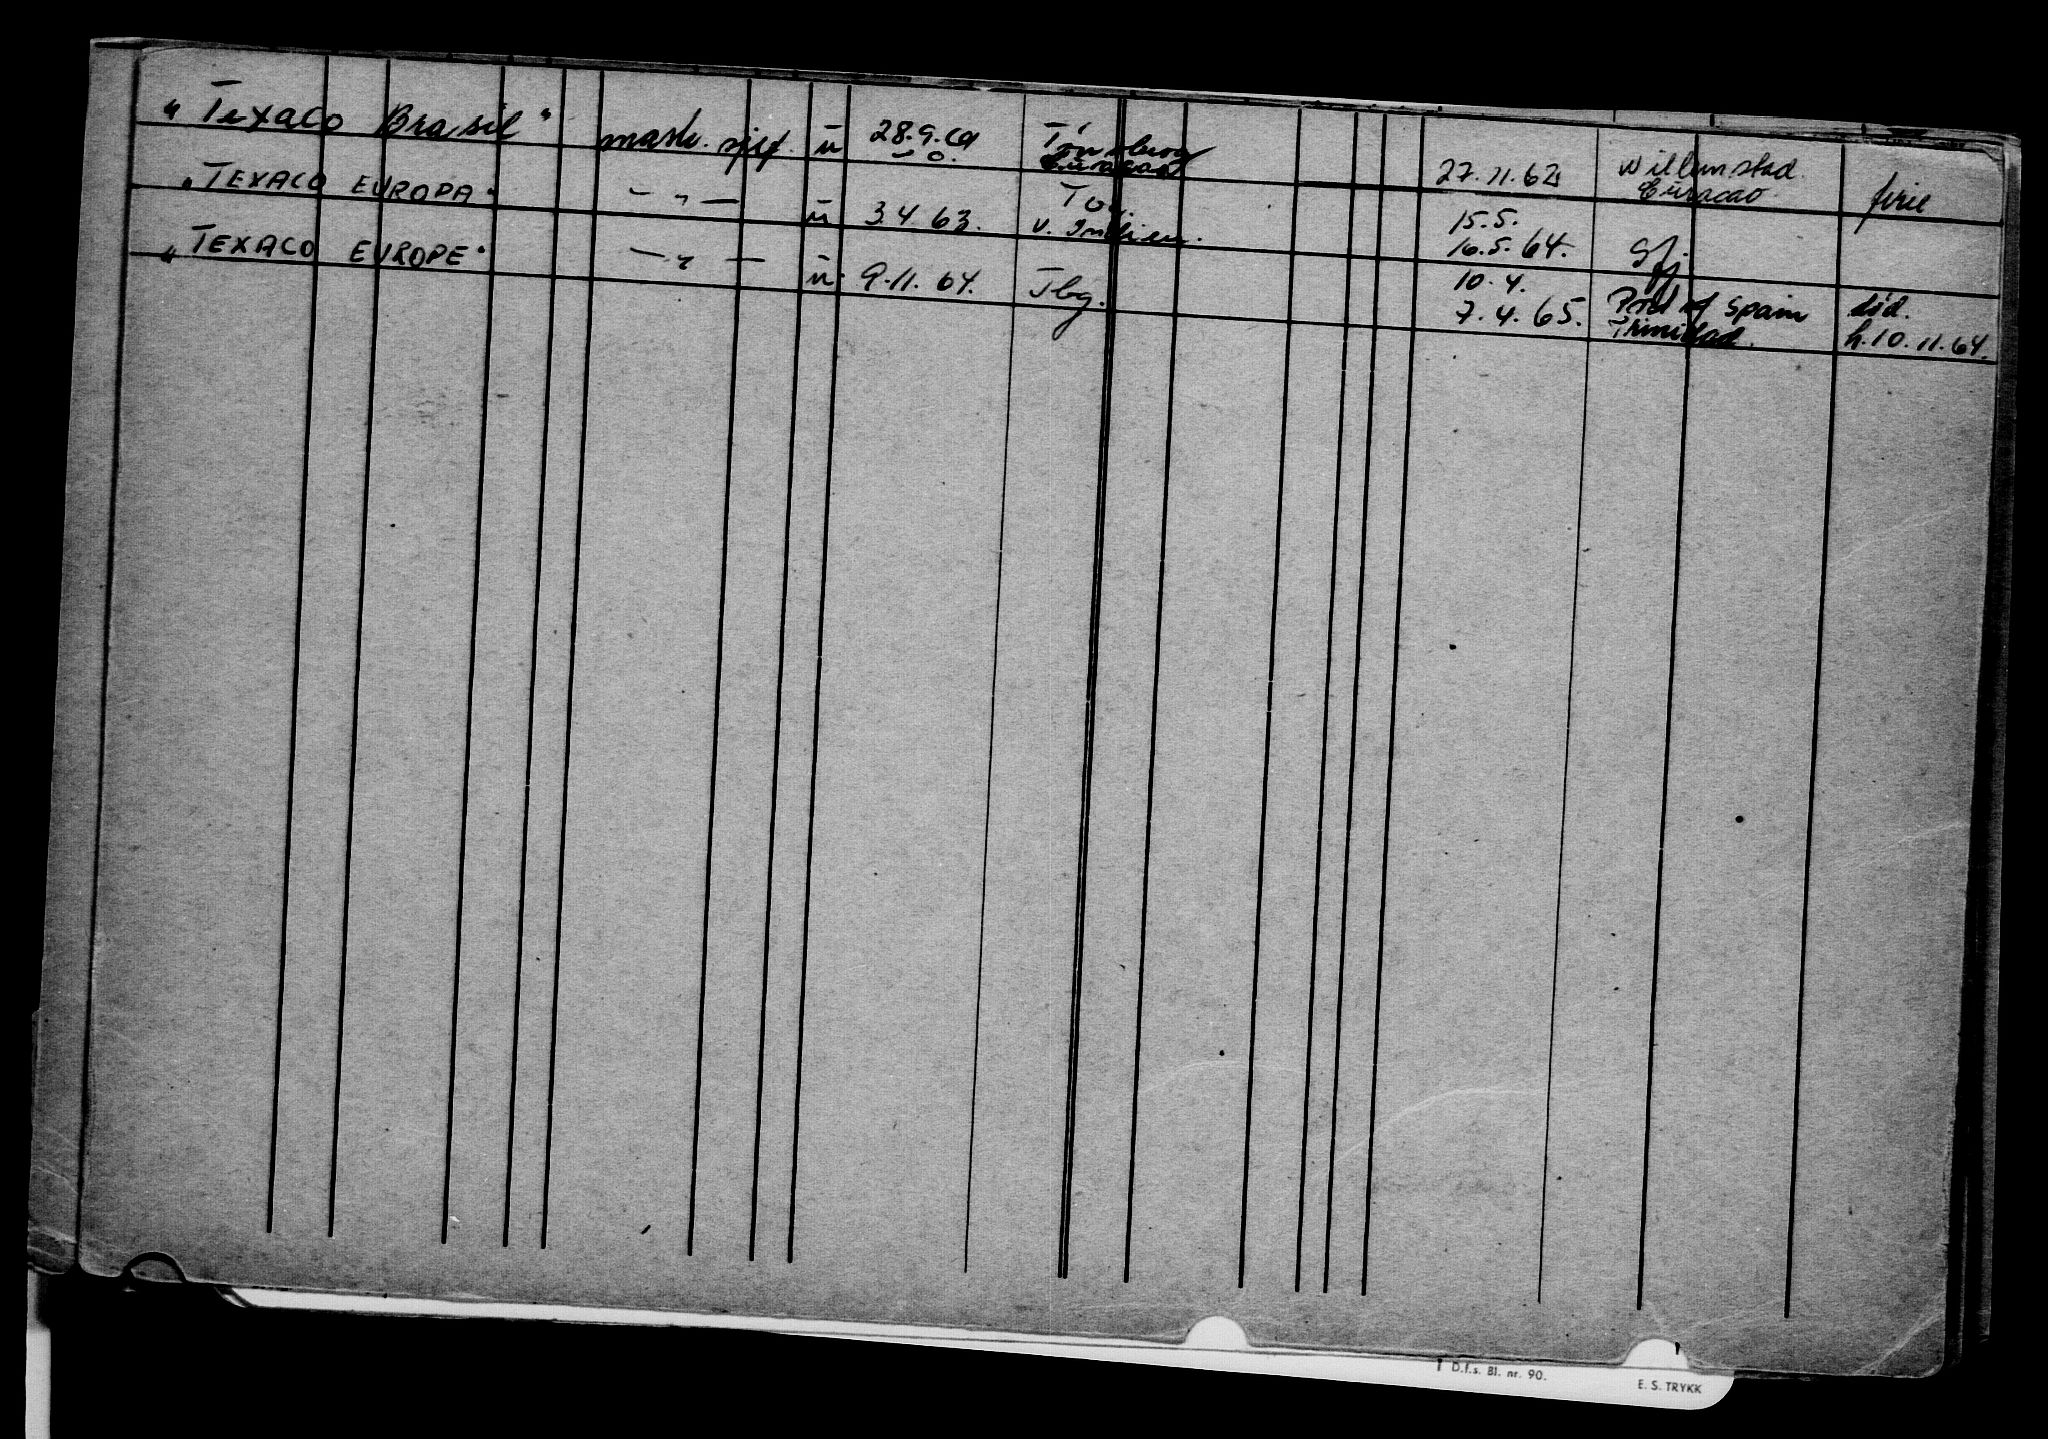 "Texaco Brasil" mask. sjef. u 28.9.61 Tönsberg 27.11.62 Willemstad. ferie
— o. Curacao Curacao
"TEXACO EUROPA" — " — u 3.4.63. V. Indien. 15.5.
16.5.64.
"TEXACO EUROPE" — " — u. 9.11.64. Tbg. 10.4.
7.4.65. Port of Spain død.
Trinidad. h.10.11.64.
D.f.s. Bl. nr. 90.
E. S. TRYKK